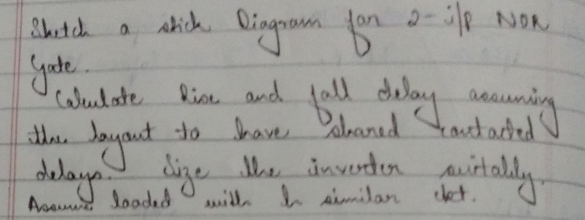 Sketch a stick Diagram for 2-i/p NOR
gate.
Calculate Rise and fall delay assuming
the layout to have shared contacted
delays. Size the inverter suitably.
Assume loaded with h similar ckt.